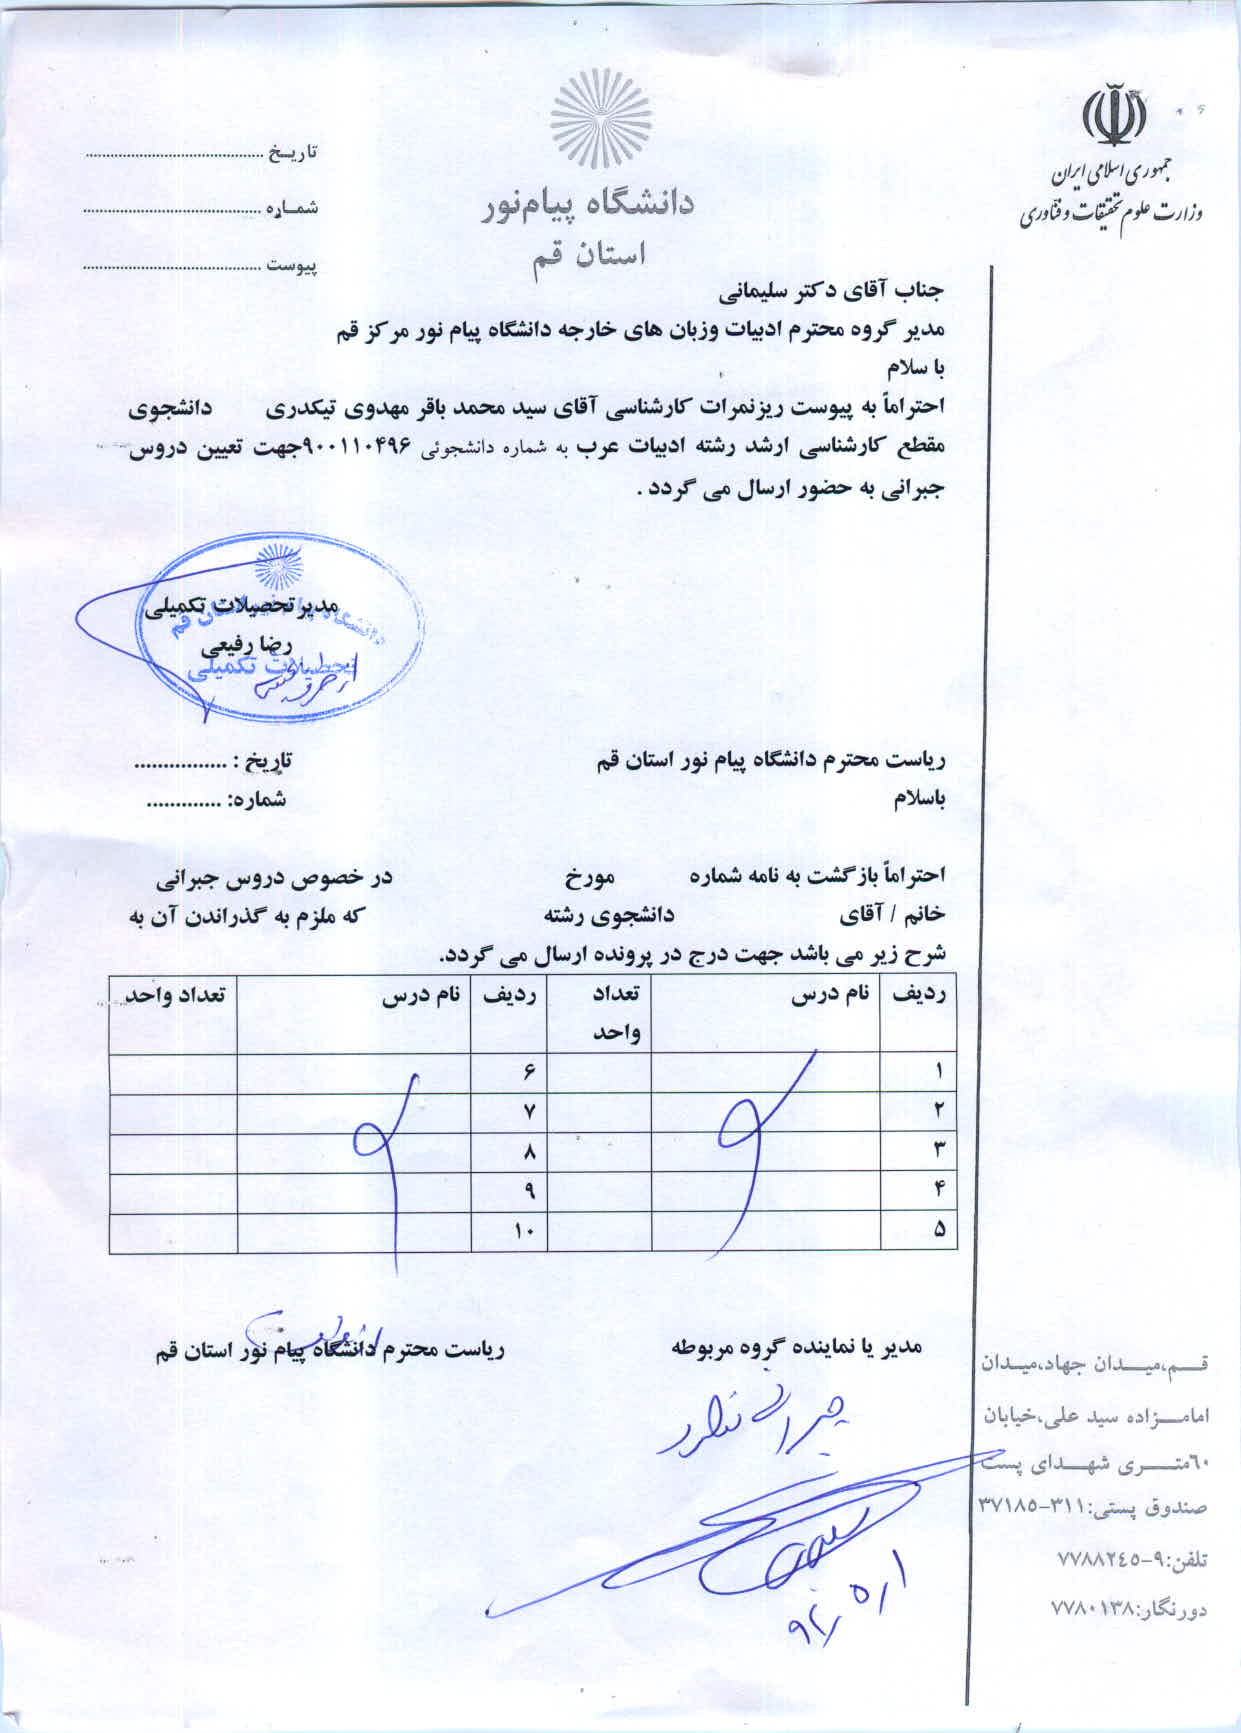 جمهوری اسلامی ایران
وزارت علوم تحقیقات و فناوری
دانشگاه پیام‌نور
استان قم
تاریـخ ...........................................
شمـاره ...........................................
پیوست ...........................................
جناب آقای دکتر سلیمانی
مدیر گروه محترم ادبیات وزبان های خارجه دانشگاه پیام نور مرکز قم
با سلام
احتراماً به پیوست ریزنمرات کارشناسی آقای سید محمد باقر مهدوی تیکدری دانشجوی
مقطع کارشناسی ارشد رشته ادبیات عرب به شماره دانشجوئی ۹۰۰۱۱۰۴۹۶جهت تعیین دروس
جبرانی به حضور ارسال می گردد .
مدیر تحصیلات تکمیلی
رضا رفیعی
دانشگاه پیام نور استان قم
تحصیلات تکمیلی
ریاست محترم دانشگاه پیام نور استان قم
تاریخ : ................
باسلام
شماره: .............
احتراماً بازگشت به نامه شماره مورخ در خصوص دروس جبرانی
خانم / آقای دانشجوی رشته که ملزم به گذراندن آن به
شرح زیر می باشد جهت درج در پرونده ارسال می گردد.
ردیف نام درس تعداد واحد ردیف نام درس تعداد واحد
۱ ۶
۲ ۷
۳ ۸
۴ ۹
۵ ۱۰
مدیر یا نماینده گروه مربوطه
ریاست محترم دانشگاه پیام نور استان قم
جبرانی ندارد
۹۲٫۵٫۱
قــم،میــدان جهاد،میـدان
امامــزاده سید علی،خیابان
٦٠متـــری شهــدای پست
صندوق پستی:۳۱۱-۳۷۱۸٥
تلفن:۹-۷۷۸۸۲٤٥
دورنگار:۷۷۸۰۱۳۸